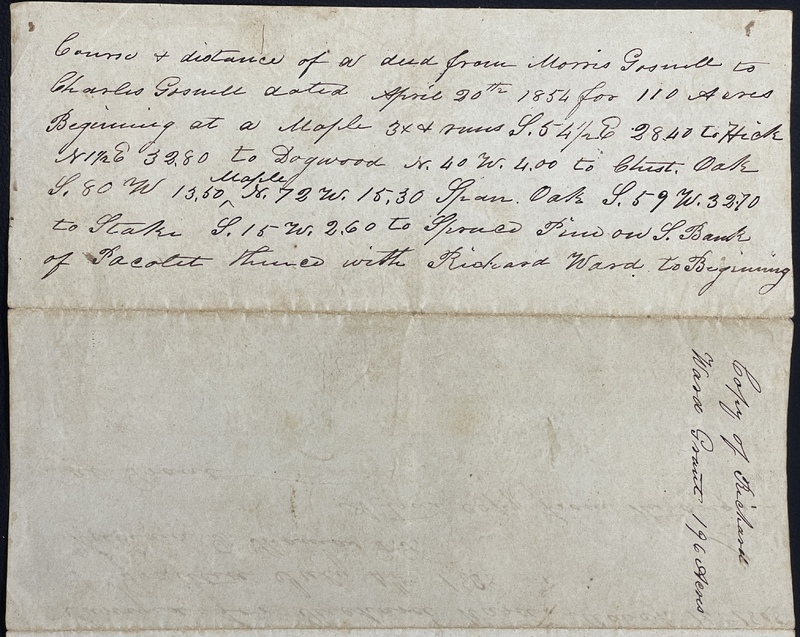 Course & distance of a deed from Morris Gosnell to
Charles Gosnell dated April 20th 1854 for 110 Acres
Beginning at a Maple 3x & runs S. 54 1/2 E 28.40 to Hick
N 1/2 E 32.80 to Dogwood N. 40 W. 4.00 to Chest. Oak
S. 80 W 13,50 ^ Maple N. 72 W. 15.30 Span. Oak S. 59 W. 32.70
to Stake S. 15 W. 2.60 to Spruce Pine on S. Bank
of Pacolet thence with Richard Ward to Beginning
Copy of Richard
Ward Grant 196 Acres